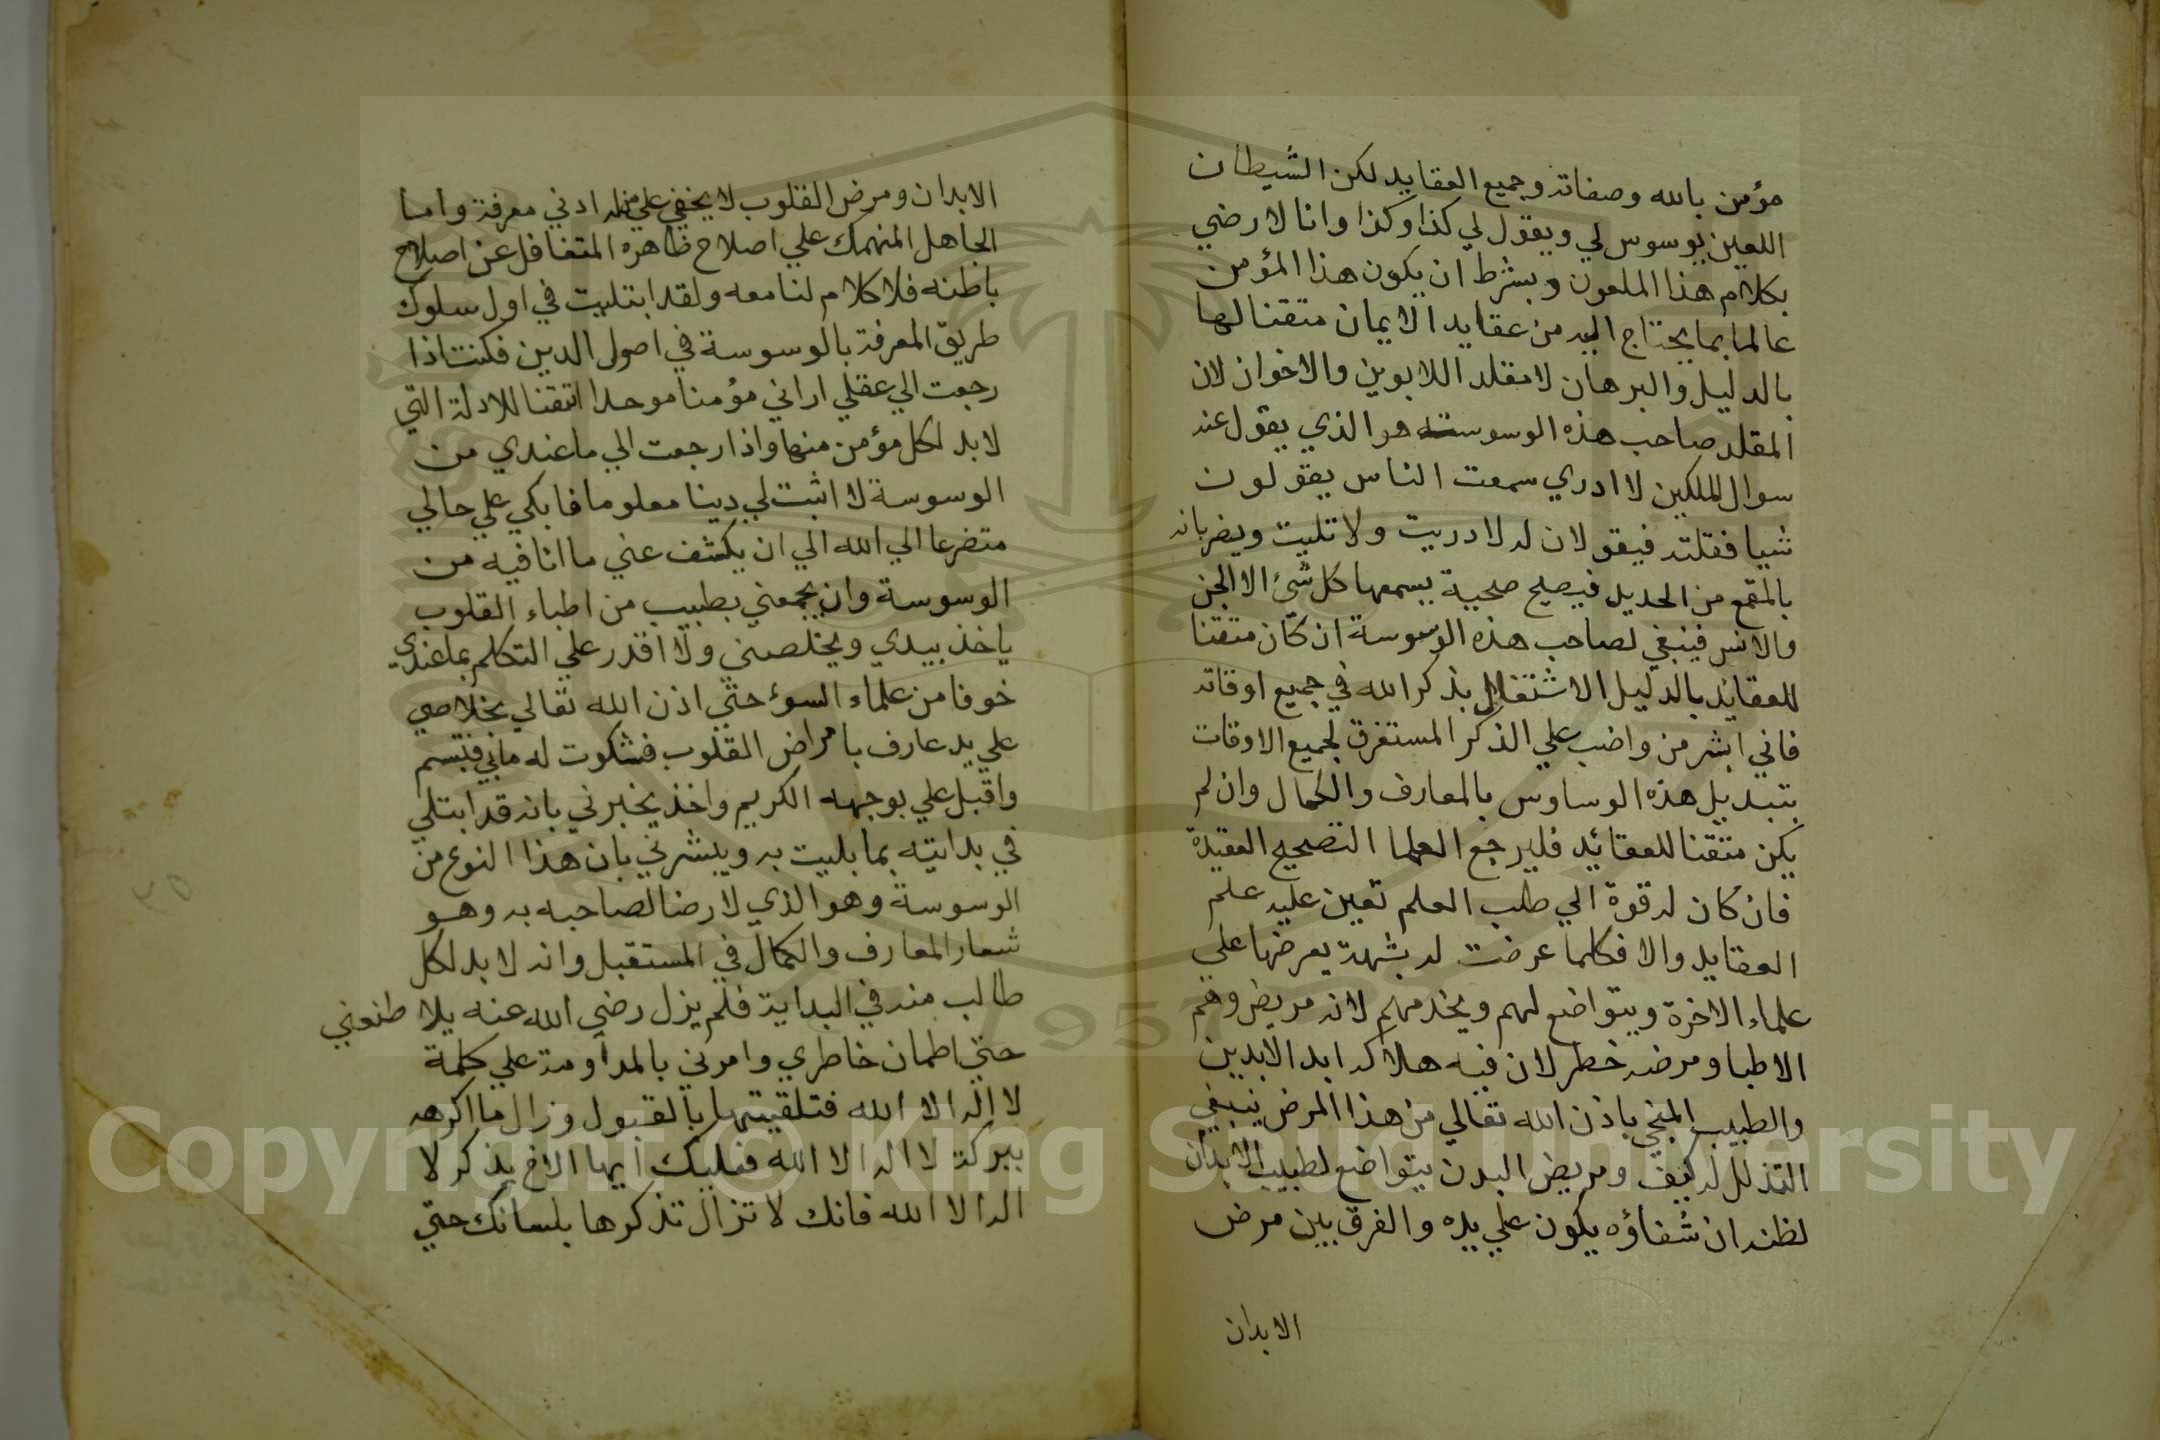 مؤمن بالله وصفاته وجميع العقايد لكن الشيطان
اللعين يوسوس لي ويقول لي كذا وكذا وانا لا رضي
بكلام هذا الملعون وبشرط ان يكون هذا المؤمن
عالما بما يحتاج اليه من عقايد الايمان متقنا لها
بالدليل والبرهان لا مقلد اللابوين والاخوان لان
المقلد صاحب هذه الوسوسة هو الذي يقول عند
سوال الملكين لا ادري سمعت الناس يقولون
شيا فقلته فيقولان له لا دريت ولا تليت ويضربانه
بالمقمع من الحديد فيصيح صحية يسمعها كل شئ الا الجن
والانس فينبغي لصاحب هذه الوسوسة ان كان متقنا
للعقايد بالدليل الاشتغال بذكر الله في جميع اوقاته
فاني ابشر من واضب علي الذكر المستغرق لجميع الاوقات
بتبديل هذه الوساوس بالمعارف والكمال وان لم
يكن متقنا للعقائد فليرجع العلما التصحيح العقيدة
فان كان له قوة الي طلب العلم تعين عليه علم
العقايد والا فكلما عرضت له بشهة يعرضها علي
علماء الاخرة ويتواضع لهم ويخدمهم لانه مريض وهم
الاطبا ومرضه خطر لان فيه هلاكه ابد الابدين
والطبيب المنجي باذن الله تعالي من هذا المرض ينبغي
التذلل له كيف ومريض البدن يتواضع لطبيب الابدان
لظنه ان شفاؤه يكون علي يده والفرق بين مرض
الابدان
الابدان ومرض القلوب لا يخفي علي من له ادني معرفة واما
الجاهل المنهمك علي اصلاح ظاهره المتغافل عن اصلاح
باطنه فلا كلام لنا معه ولقد ابتليت في اول سلوك
طريق المعرفة بالوسوسة في اصول الدين فكنت اذا
رجعت الي عقلي اراني مؤمنا موحدا اتقنا للادلة التي
لا بد لكل مؤمن منها واذا رجعت الي ما عندي من
الوسوسة لا اثبت لي دينا معلوما فابكي علي حالي
متضرعا الي الله الي ان يكشف عني ما انا فيه من
الوسوسة وان يجمعني بطبيب من اطباء القلوب
ياخذ بيدي ويخلصني ولا اقدر علي التكلم بما عندي
خوفا من علماء السوء حتي اذن الله تعالي بخلاصي
علي يد عارف بامراض القلوب فشكوت له مابي فتبسم
واقبل علي بوجهه الكريم واخذ يخبرني بانه قد ابتلي
في بدايته بما بليت به ويبشرني بان هذا النوع من
الوسوسة وهو الذي لا رضا لصاحبه به وهو
شعار المعارف والكمال في المستقبل وانه لا بد لكل
طالب منه في البداية فلم يزل رضي الله عنه يلا طنعني
حتي اطمان خاطري وامرني بالمداومة علي كلمة
لا اله الا الله فتلقيتها بالقبول وزال ما اكرهه
ببركة لا اله الا الله فعليك ايها الاخ بذكر لا
اله الا الله فانك لا تزال تذكرها بلسانك حتي
Copyright © King Saud University
1957